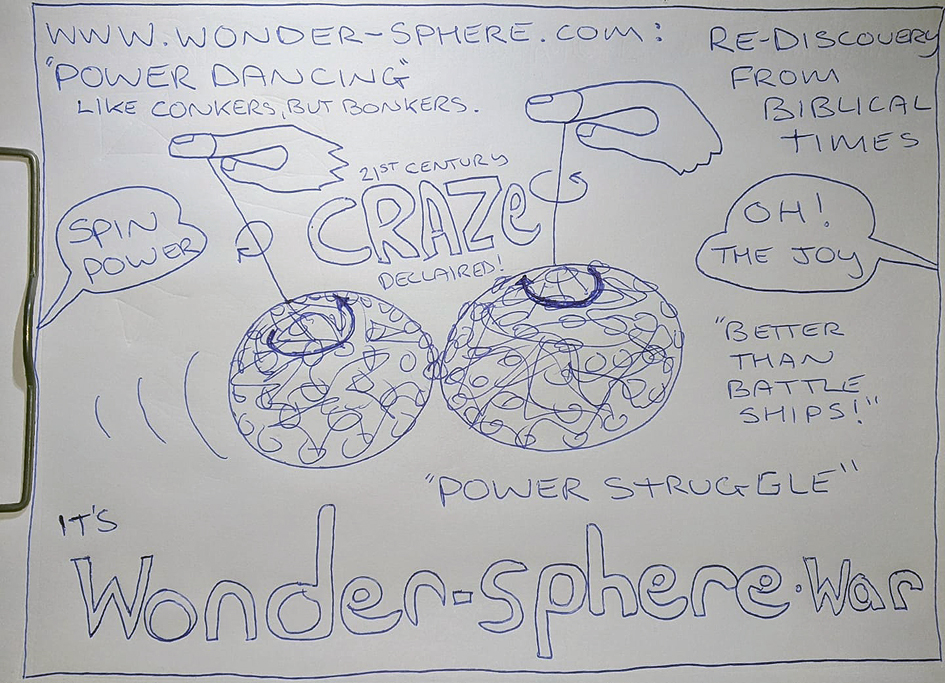 WWW.WONDER-SPHERE.COM:
"POWER DANCING"
LIKE CONKERS, BUT BONKERS.
RE-DISCOVERY
FROM
BIBLICAL
TIMES
21ST CENTURY
CRAZe
DECLAIRED!
SPIN
POWER
OH!
THE JOY
"BETTER
THAN
BATTLE
SHIPS!"
"POWER STRUGGLE"
IT'S
Wonder-sphere.War